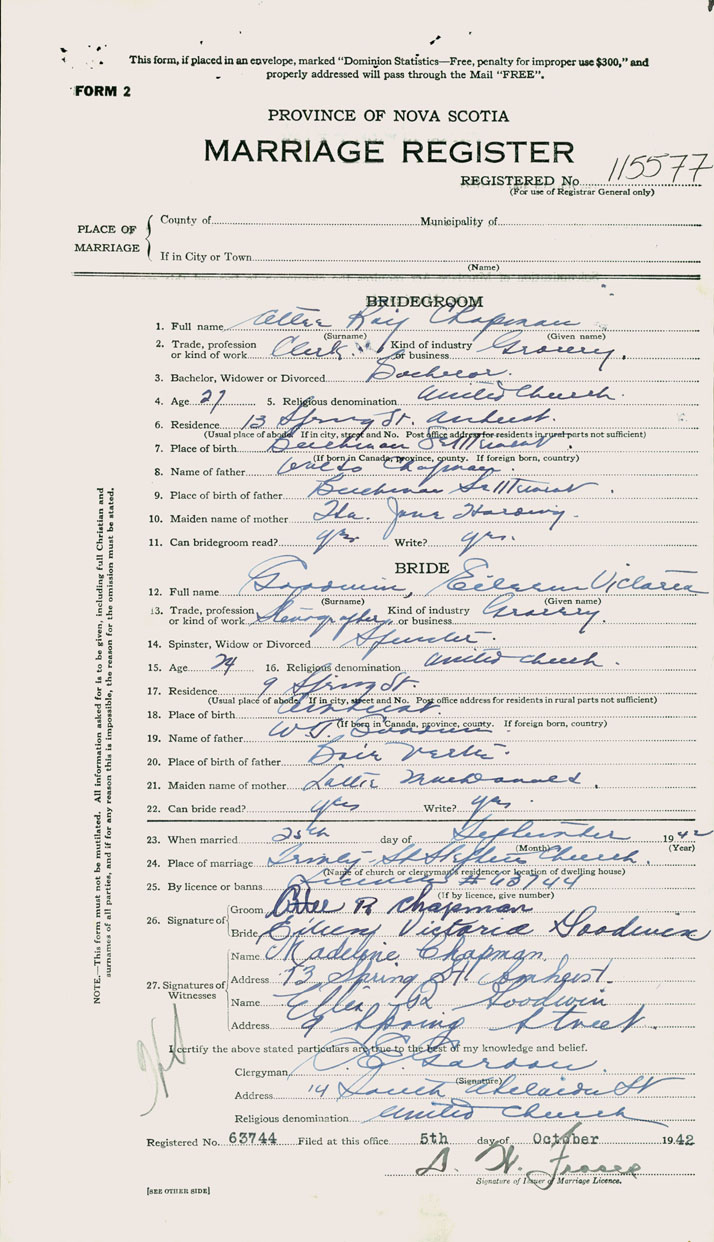 This form, if placed in an envelope, marked "Dominion Statistics—Free, penalty for improper use $300," and
properly addressed will pass through the Mail "FREE".
FORM 2
PROVINCE OF NOVA SCOTIA
MARRIAGE REGISTER
REGISTERED No. 115577
(For use of Registrar General only)
PLACE OF MARRIAGE
County of Municipality of
If in City or Town
(Name)
BRIDEGROOM
1. Full name Chapman
(Surname) (Given name)
2. Trade, profession or kind of work Clerk Kind of industry or business Grocery.
3. Bachelor, Widower or Divorced Bachelor.
4. Age 27 5. Religious denomination United Church.
6. Residence 13 Spring St. Amherst.
(Usual place of abode. If in city, street and No. Post office address for residents in rural parts not sufficient)
7. Place of birth
(If born in Canada, province, county. If foreign born, country)
8. Name of father Chapman.
9. Place of birth of father
10. Maiden name of mother Ida. Jane Harding.
11. Can bridegroom read? yes. Write? yes.
BRIDE
12. Full name Goodwin, Eileen Victoria
(Surname) (Given name)
13. Trade, profession or kind of work Stenographer, Kind of industry or business Grocery
14. Spinster, Widow or Divorced Spinster.
15. Age 24 16. Religious denomination United Church.
17. Residence 9 Spring St.
(Usual place of abode. If in city, street and No. Post office address for residents in rural parts not sufficient)
18. Place of birth Amherst
(If born in Canada, province, county. If foreign born, country)
19. Name of father W.T. Goodwin.
20. Place of birth of father Baie Verte.
21. Maiden name of mother Lottie MacDonald.
22. Can bride read? yes Write? yes.
23. When married 25th day of September 1942
(Month) (Year)
24. Place of marriage Trinity-St Stephens Church.
(Name of church or clergyman's residence or location of dwelling house)
25. By licence or banns License #63744
(If by licence, give number)
26. Signature of
Groom R Chapman
Bride Eileen Victoria Goodwin
27. Signatures of Witnesses
Name Madeline Chapman.
Address 13 Spring St Amherst.
Name Goodwin
Address 9 Spring Street.
I certify the above stated particulars are true to the best of my knowledge and belief.
Clergyman
(Signature)
Address 14 South Adelaide St
Religious denomination United Church
Registered No. 63744 Filed at this office 5th day of October 1942
Signature of Issuer of Marriage Licence.
[SEE OTHER SIDE]
NOTE.—This form must not be mutilated. All information asked for is to be given, including full Christian and
surnames of all parties, and if for any reason this is impossible, the reason for the omission must be stated.